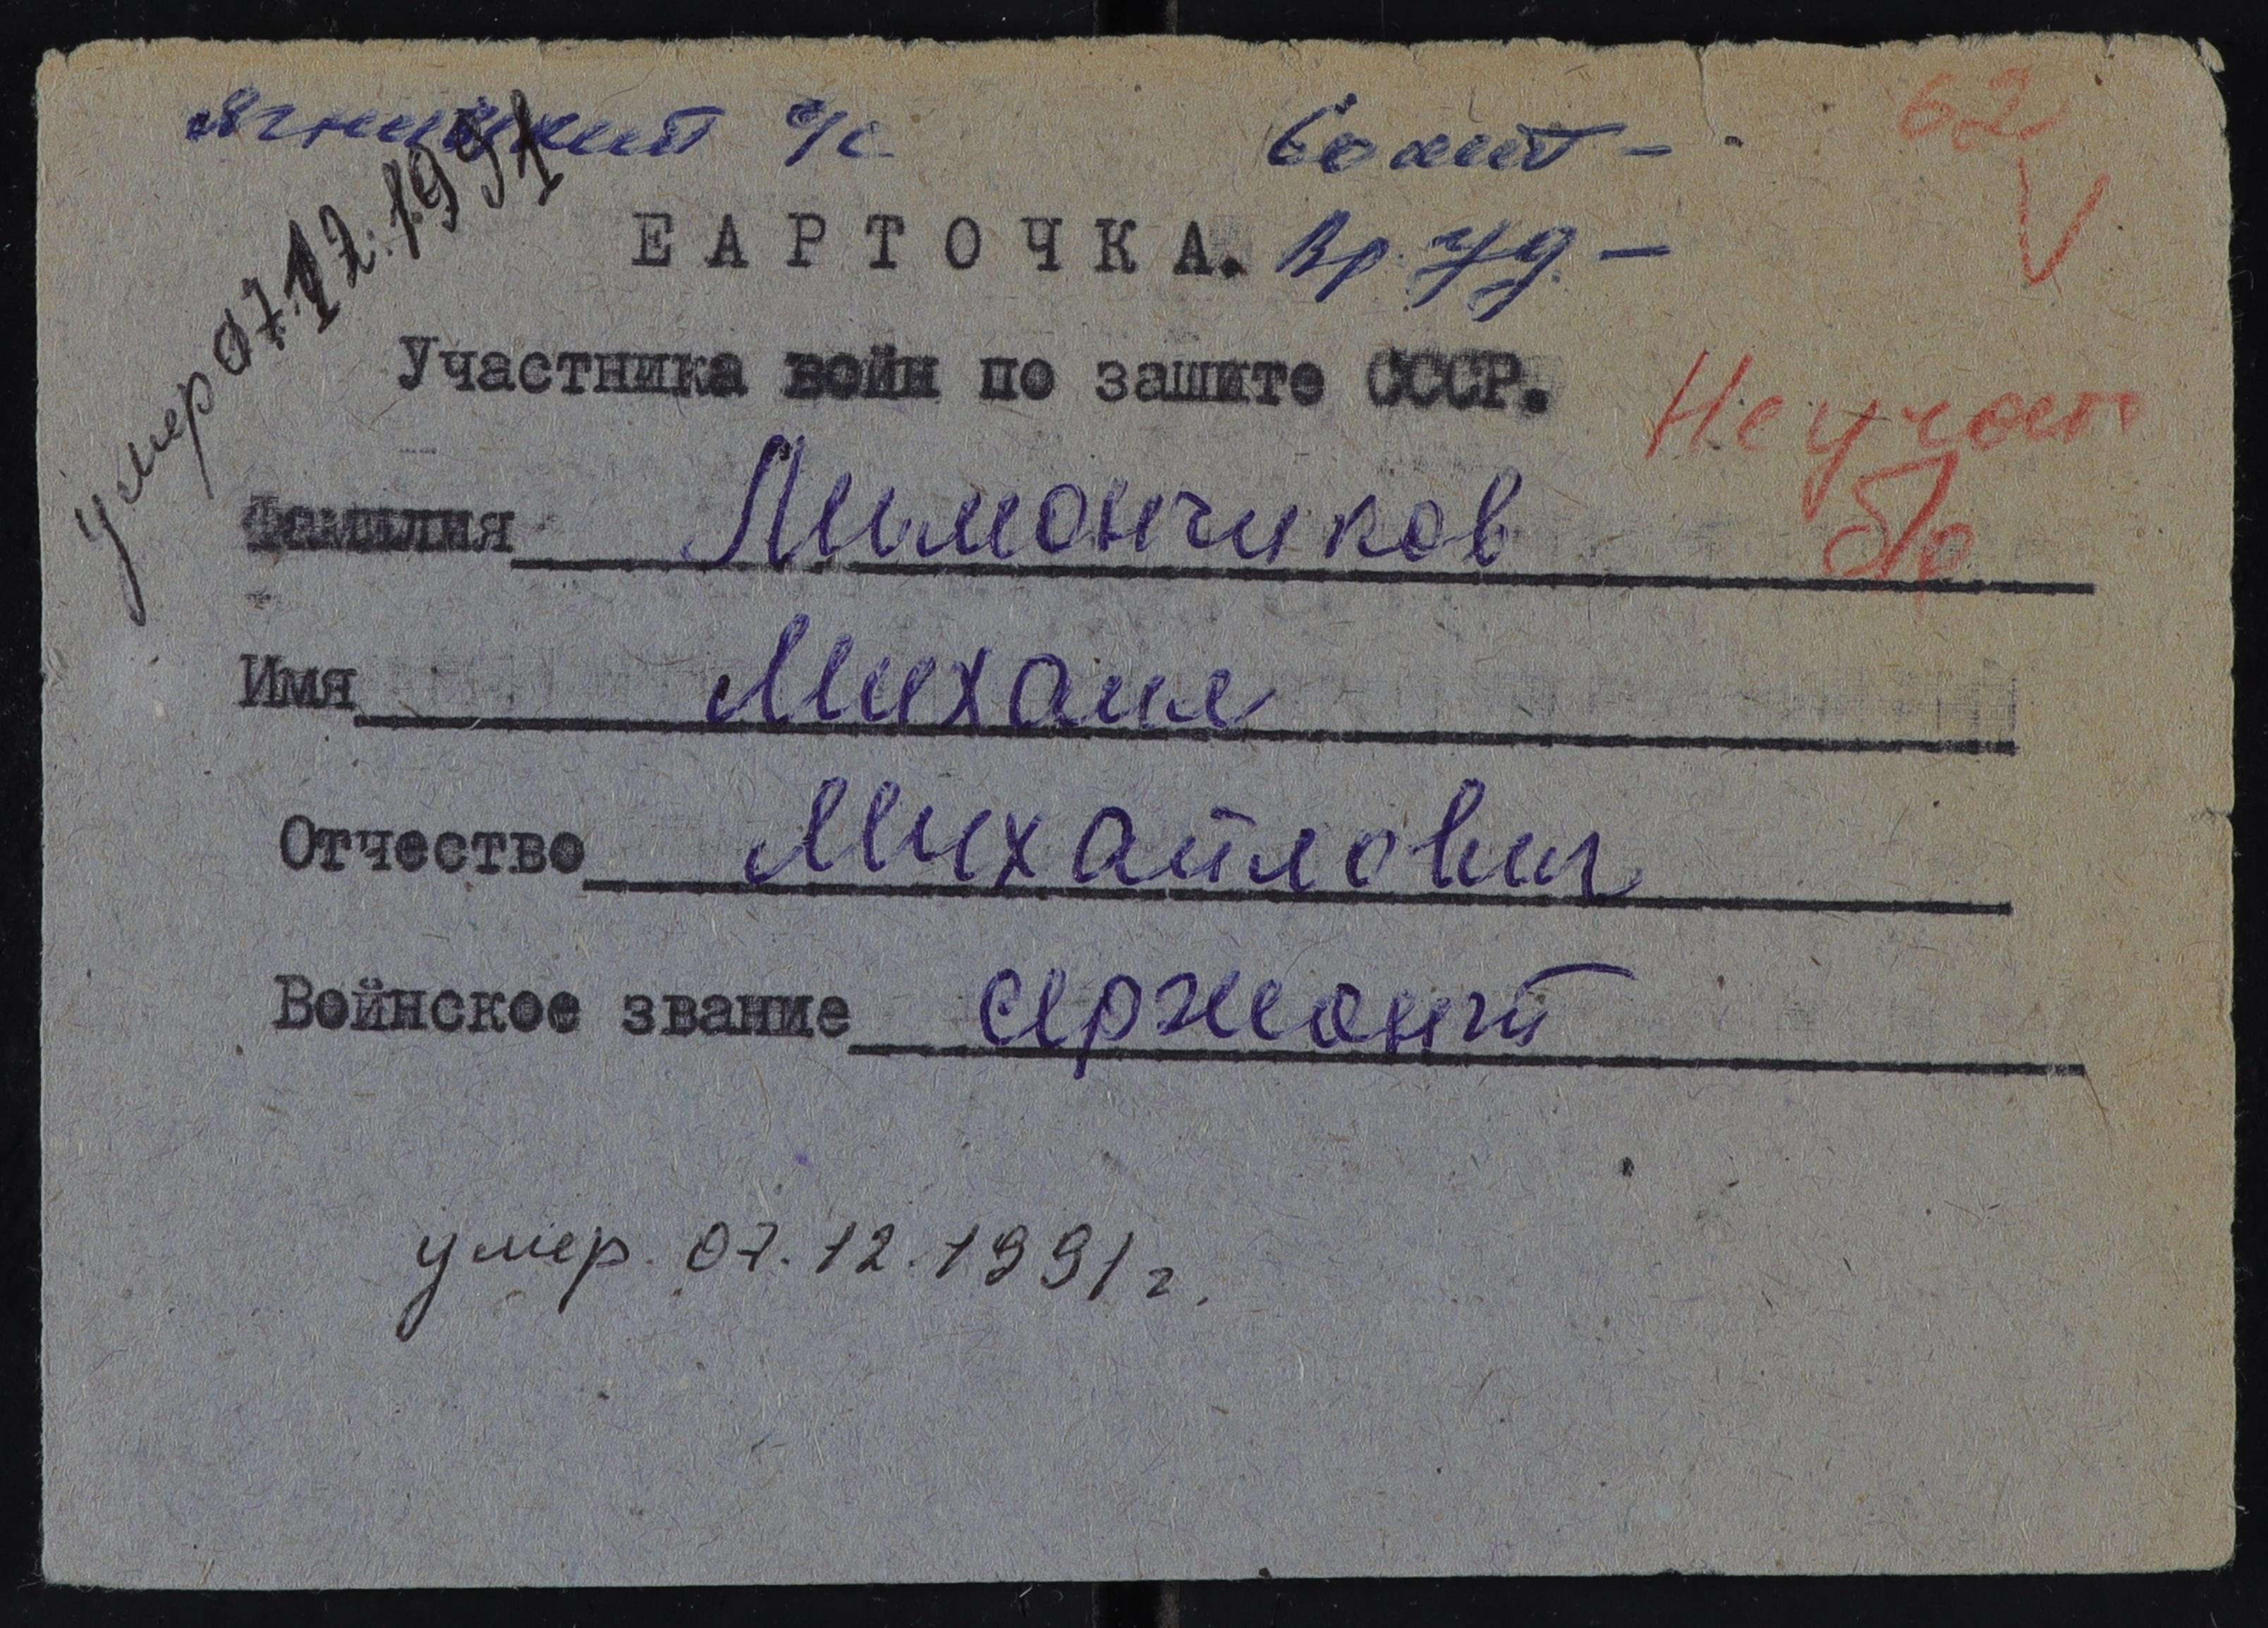 Ягницкий с/с
62
ЕАРТОЧКА. Вр. уд. –
умер 07.12.1991
Участника войн по защите СССР.
Не участ
б/р
Фамилия Лимончиков
Имя Михаил
Отчество Михайлович
Воинское звание сержант
умер. 07.12.1991 г.